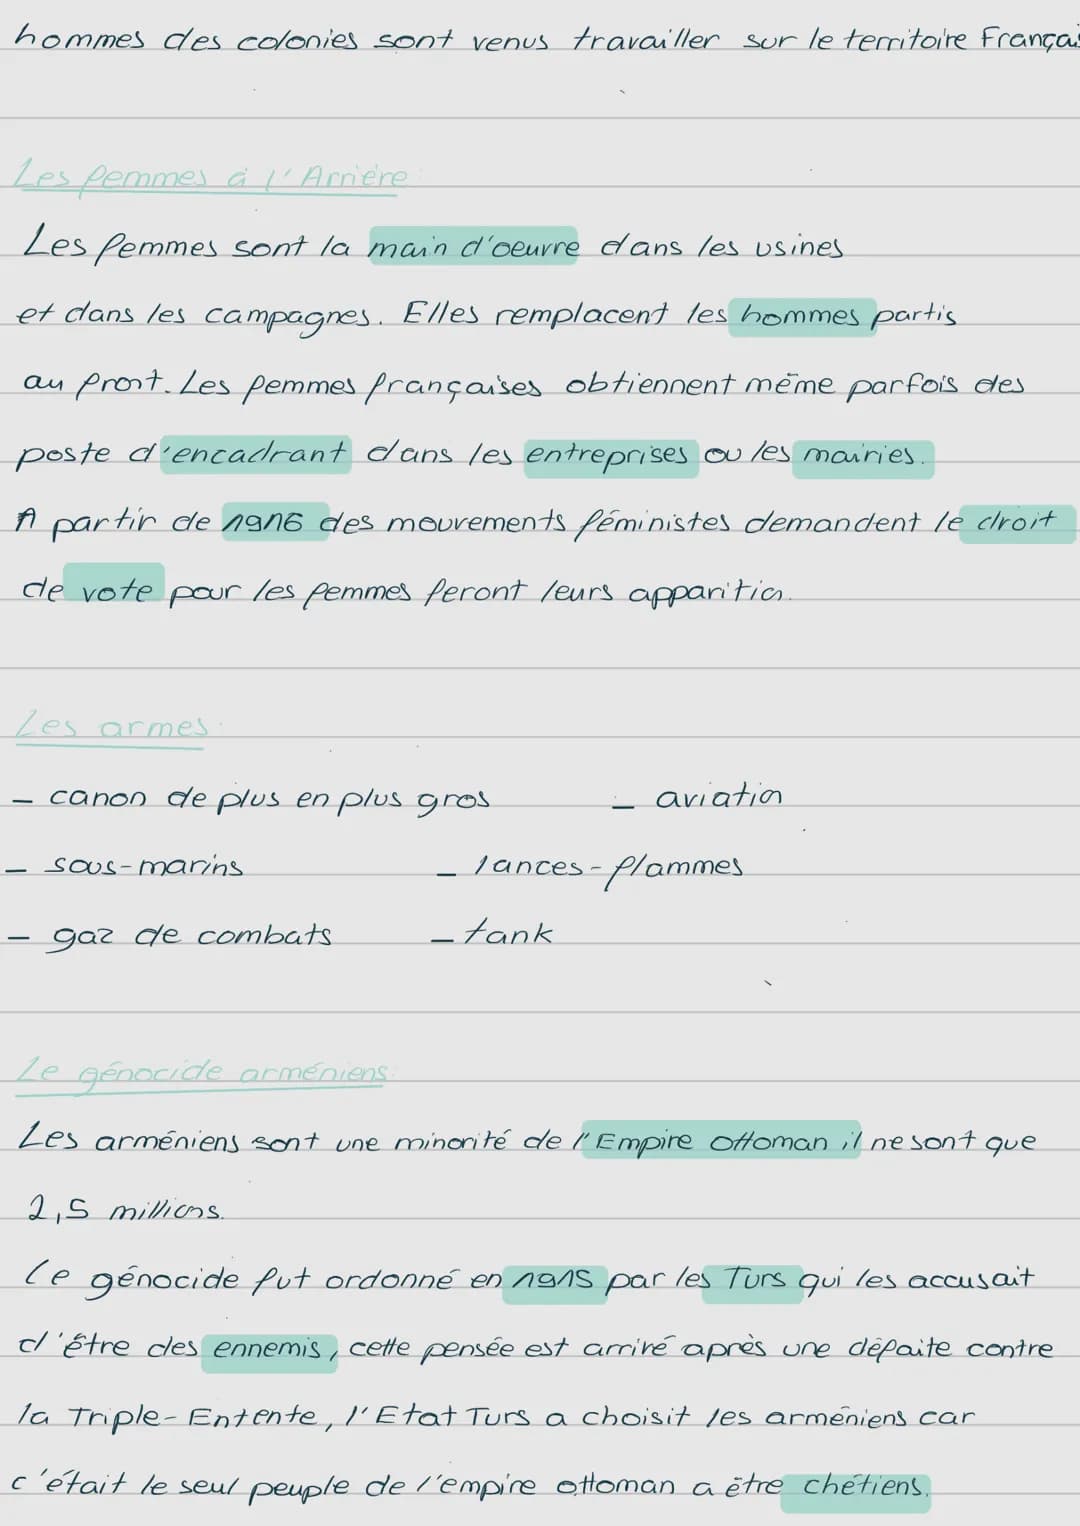 hommes des colonies sont venus travailler sur le territoire Français
Les femmes à l'Arrière:
Les femmes sont la main d'oeuvre dans les usines
et dans les campagnes. Elles remplacent les hommes partis
au front. Les femmes françaises obtiennent même parfois des
poste d'encadrant dans les entreprises ou les mairies.
A partir de 1916 des mouvements féministes demandent le droit
de vote pour les femmes feront leurs apparition.
Les armes:
- canon de plus en plus gros - aviation
- sous-marins - lances-flammes
- gaz de combats - tank
Le génocide arméniens:
Les arméniens sont une minorité de l'Empire Ottoman il ne sont que
2,5 millions.
Le génocide fut ordonné en 1915 par les Turs qui les accusait
d'être des ennemis, cette pensée est arrivé après une défaite contre
la Triple-Entente, l'Etat Turs a choisit les arméniens car
c'était le seul peuple de l'empire ottoman a être chétiens.